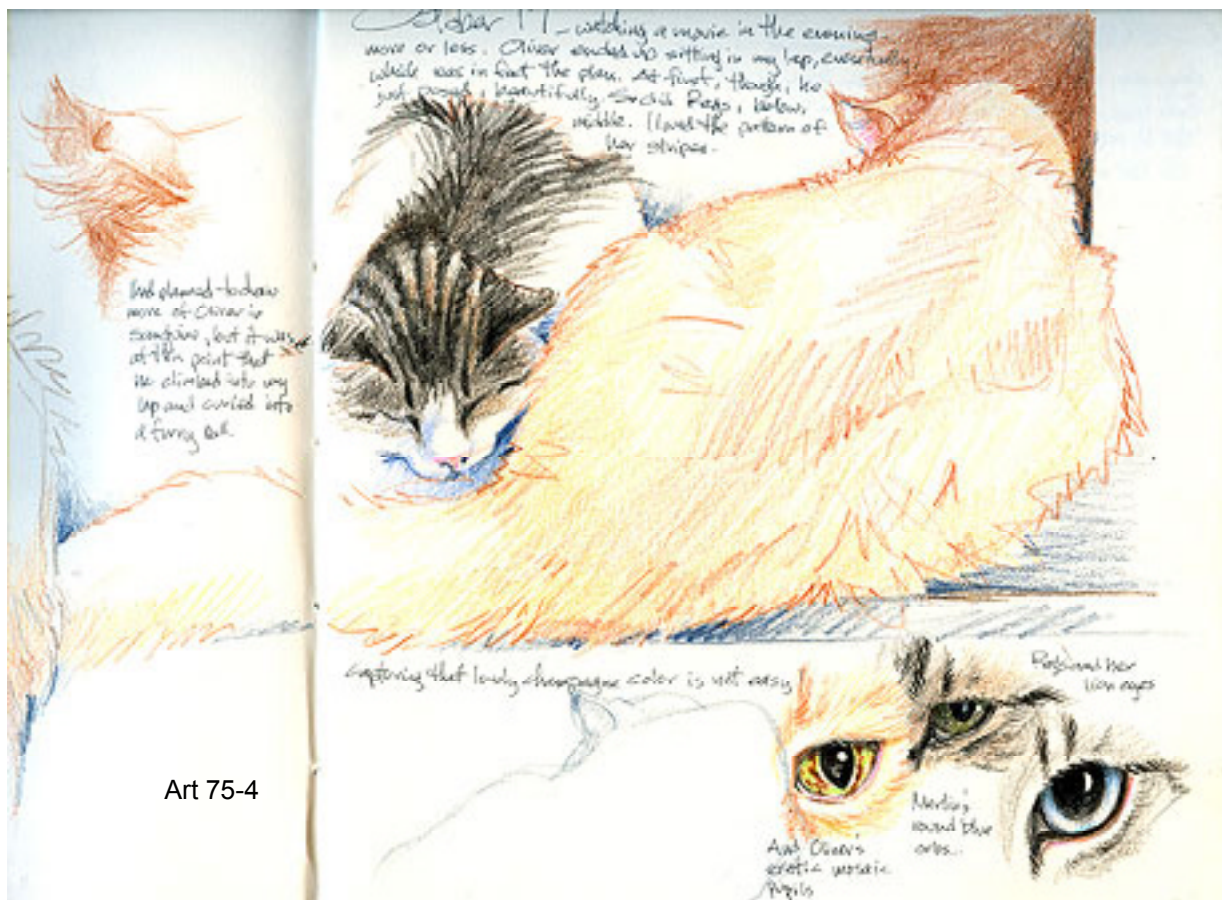 October 17 - watching a movie in the evening
more or less. Oliver ended up sitting in my lap, eventually,
which was in fact the plan. At first, though, he
just posed, beautifully. So did Rags, below,
middle. I loved the pattern of
her stripes.
Had planned to draw
more of Oliver in
sanguine, but it was
at this point that
he climbed into my
lap and curled into
a furry ball.
capturing that lovely champagne color is not easy
Rags and her
lion eyes
Merlin's
round blue
orbs...
And Oliver's
exotic mosaic
pupils
Art 75-4